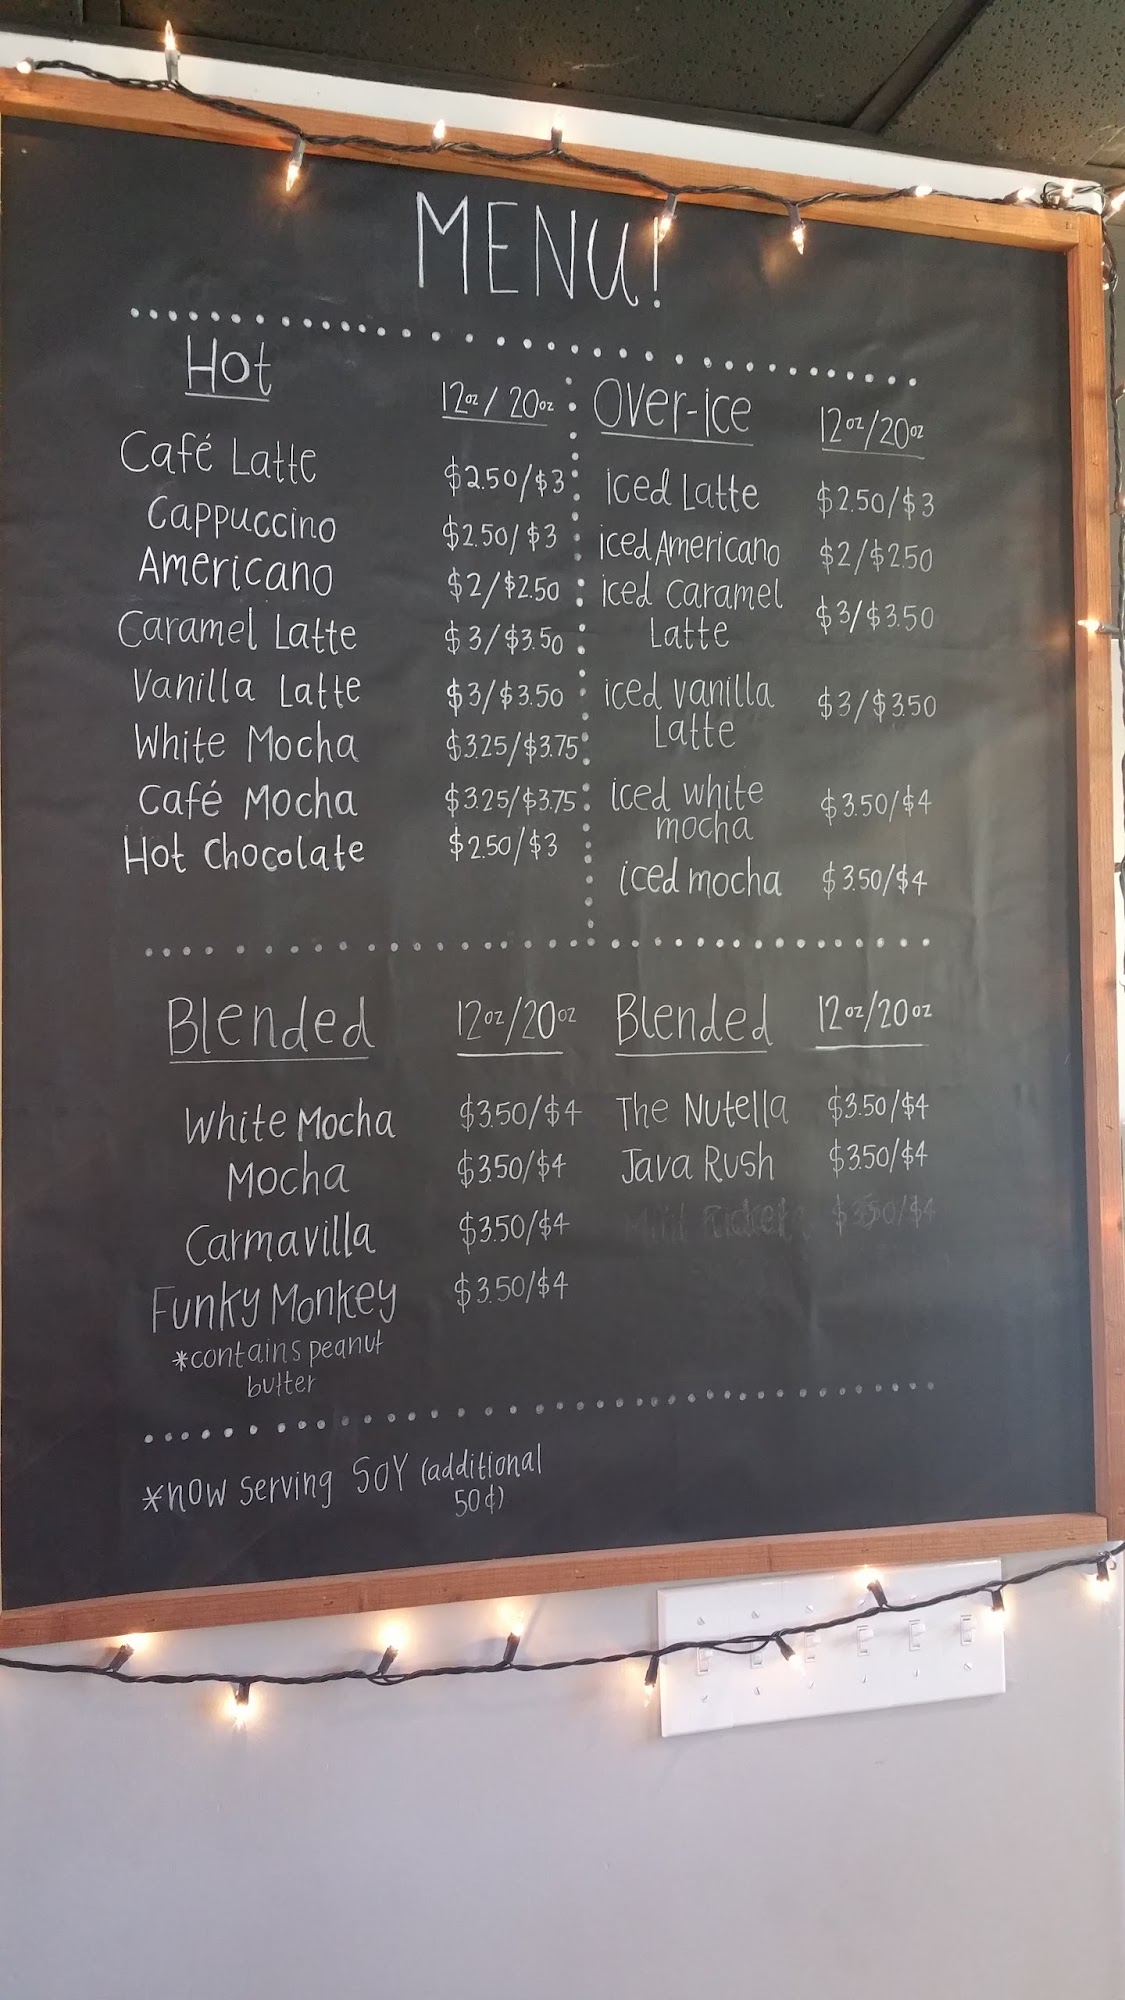 MENU!
Hot 12oz / 20oz
Café Latte $2.50/$3
Cappuccino $2.50/$3
Americano $2/$2.50
Caramel Latte $3/$3.50
Vanilla Latte $3/$3.50
White Mocha $3.25/$3.75
Café Mocha $3.25/$3.75
Hot Chocolate $2.50/$3
Over-ice 12oz/20oz
iced Latte $2.50/$3
iced Americano $2/$2.50
iced Caramel
Latte $3/$3.50
iced vanilla
Latte $3/$3.50
iced white
mocha $3.50/$4
iced mocha $3.50/$4
Blended 12oz/20oz
White Mocha $3.50/$4
Mocha $3.50/$4
Carmavilla $3.50/$4
Funky Monkey $3.50/$4
*contains peanut
butter
Blended 12oz/20oz
The Nutella $3.50/$4
Java Rush $3.50/$4
$3.50/$4
*now serving SOY (additional
50¢)